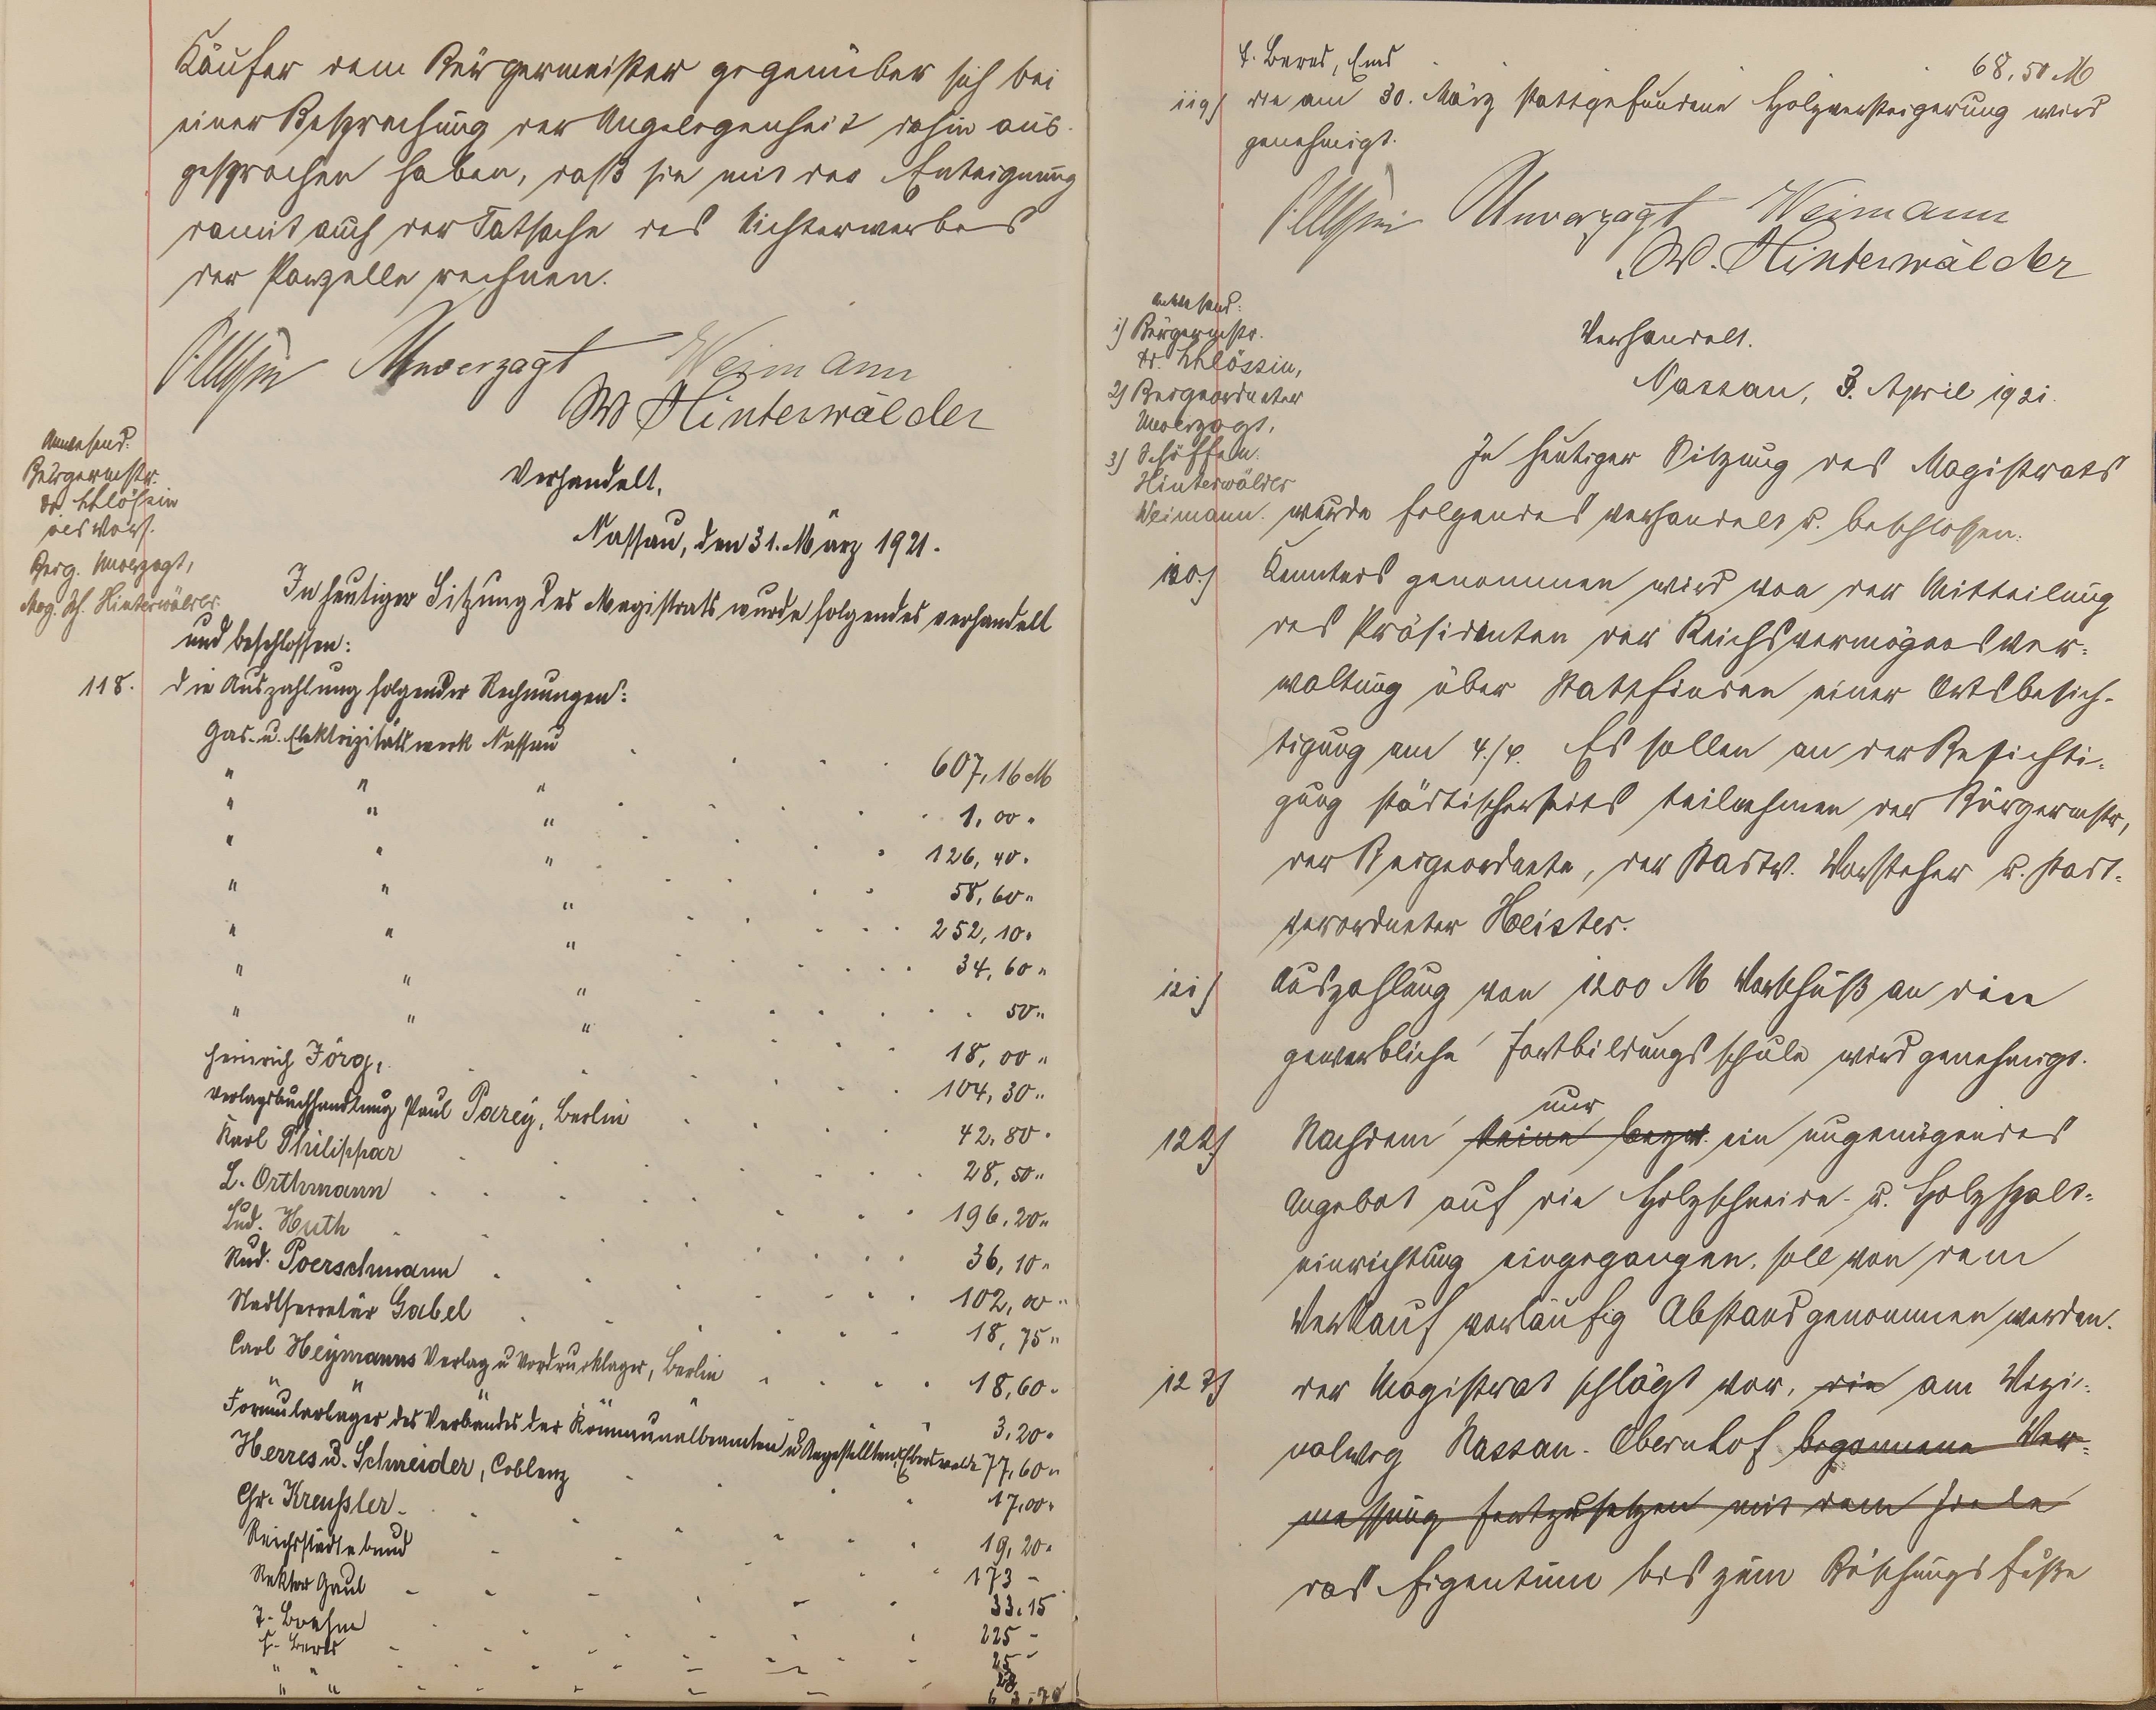 Käufer dem Bürgermeister gegenüber sich bei
einer Besprechung der Angelegenheit dahin aus-
gesprochen haben, daß sie mit der Enteignung
damit auch der Tatsache des Nichterwerbes
der Parzelle rechnen.
Unverzagt Weimann
W Hinterwälder
Anwesend:
Bürgermstr.
Dr. Schlössin
als Vors.
Beig. Unverzagt,
Mag. Sch. Hinterwälder.
Verhandelt,
Nassau, den 31. März 1921.
In heutiger Sitzung des Magistrats wurde folgendes verhandelt
und beschlossen:
118. die Auszahlung folgender Rechnungen:
Gas- u. Elektrizitätswerk Nassau 607,16 M
" " " 1,00 "
" " " 126,40 "
" " " 58,60 "
" " " 252,10 "
" " " 34,60 "
" " " 50 "
" " " 18,00 "
Heinrich Jörg, 104,30 "
Verlagsbuchhandlung Paul Parey, Berlin 42,80 "
Karl Philippar 28,50 "
L. Orthmann 196,20 "
Lud. Huth 36,10 "
Rud. Poerschmann 102,00 "
Stadtsekretär Gabel 18,75 "
Carl Heymanns Verlag u Vordrucklager, Berlin 18,60 "
" " " 3,20 "
Formularlager des Verbandes der Kommunalbeamten u Angestellten, Eberswalde 77,60 "
Herres u. Schneider, Coblenz 17,00 "
Chr. Kreußler 19,20 "
Reichsstädtebund 173 -
Rektor Gaul 33,15
J. Boehm 225 -
F. Beres 25
" "
" "
F. Beres, Ems 68,50 M
119) die am 30. März stattgefundene Holzversteigerung wird
genehmigt.
Unverzagt Weimann
W. Hinterwälder
Anwesend:
1) Bürgermstr.
Dr. Schlössin,
2) Beigeordneter
Unverzagt,
3) Schöffen:
Hinterwälder
Weimann.
Verhandelt.
Nassau, 3. April 1921.
In heutiger Sitzung des Magistrats
wurde folgendes verhandelt u. beschlossen:
120.) Kenntnis genommen wird von der Mitteilung
des Präsidenten der Reichsvermögensver-
waltung über Stattfinden einer Ortsbesich-
tigung am 4./4. Es sollen an der Besichti-
gung städtischerseits teilnehmen der Bürgermstr,
der Beigeordnete, der Stadtv. Vorsteher u. Stadt-
verordneter Heister.
121) Auszahlung von 1200 M Vorschuß an die
gewerbliche Fortbildungsschule wird genehmigt.
122) Nachdem keine bezw. nur ein ungenügendes
Angebot auf die Holzschneide- u. Holzspalt-
einrichtung eingegangen, soll von dem
Verkauf vorläufig Abstand genommen werden.
123) der Magistrat schlägt vor, die am Vizi-
nalweg Nassau-Obernhof begonnene Ver-
messung fortzusetzen mit dem Ziele
das Eigentum bis zum Böschungsfuße